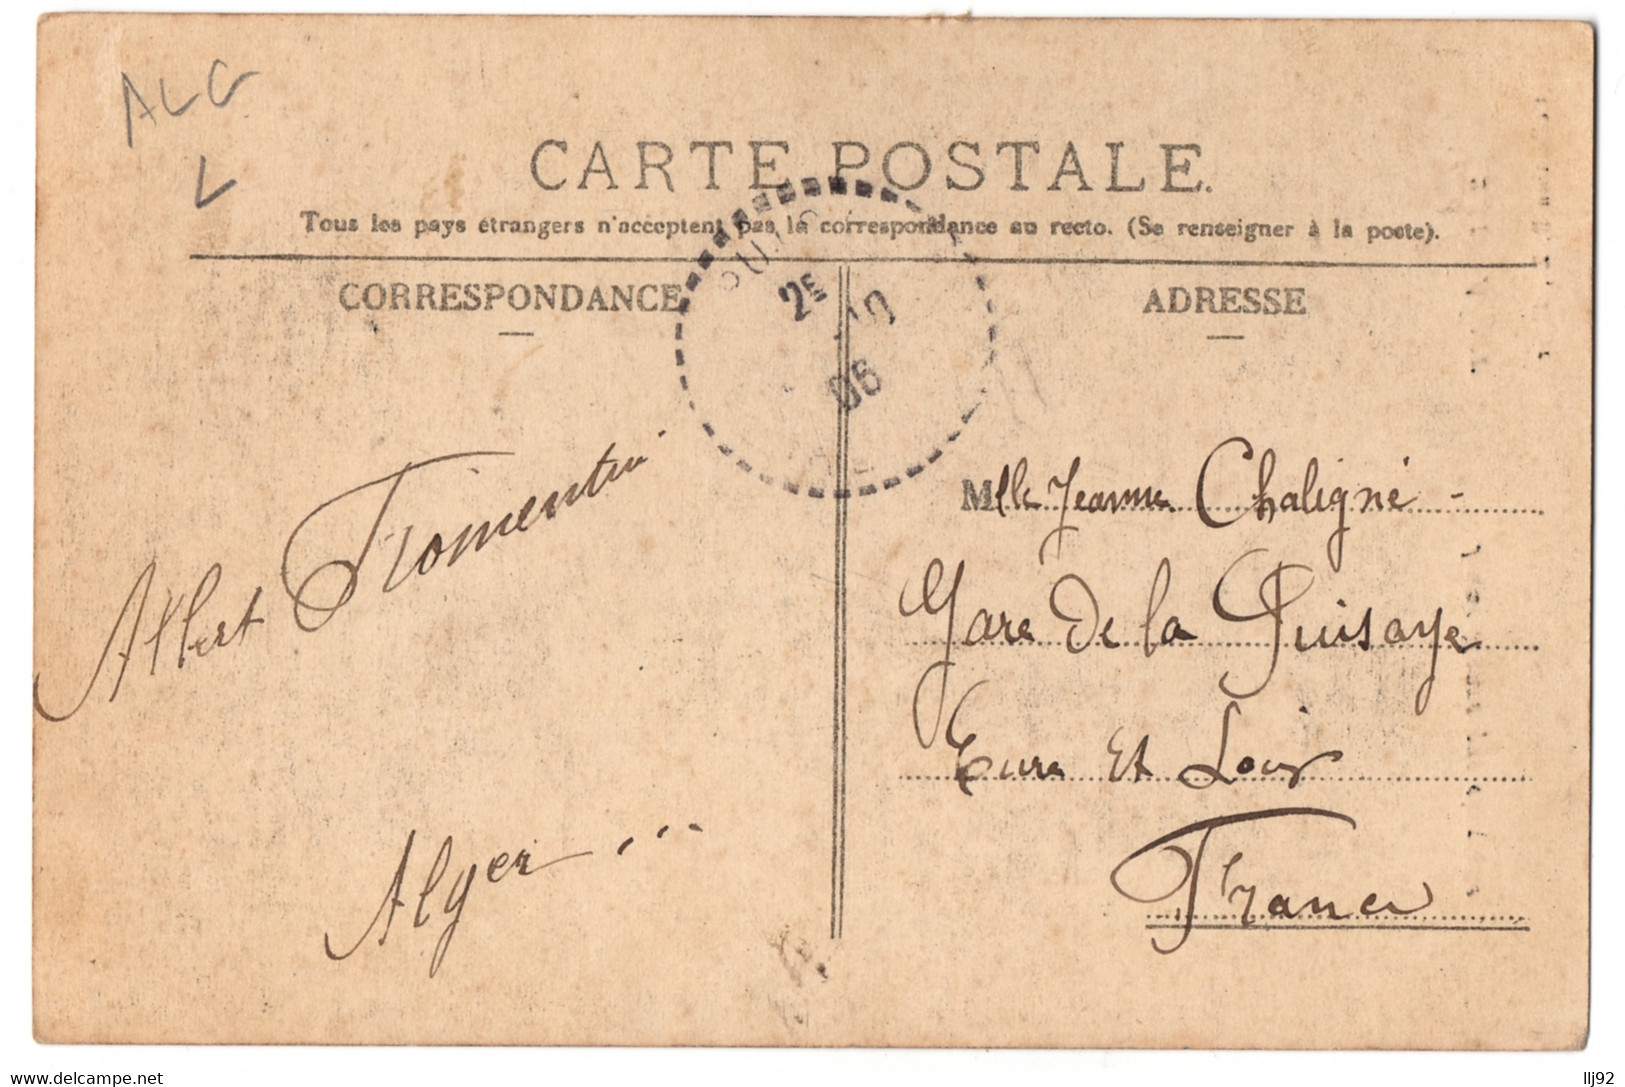 ALG
L
CARTE POSTALE.
Tous les pays étrangers n'acceptent pas la correspondance au recto. (Se renseigner à la poste).
CORRESPONDANCE
ADRESSE
2E
10
06
Albert Fromentin
Alger ...
Mlle Jeanne Chaligné -
Gare de la Puisaye
Eure et Loir
France
www.delcampe.net
llj92